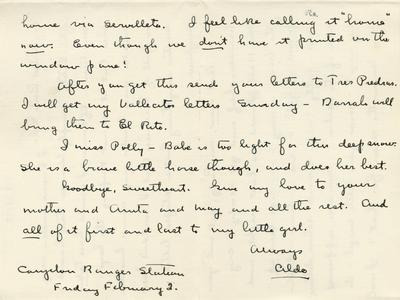 home via Servilleta. I feel like calling it "home"
now. Even though we don't have it printed on the
window pane!
After you get this send your letters to Tres Piedras.
I will get my Vallecitos letters Sunday - Darrah will
bring them to El Rito.
I miss Polly - Babe is too light for this deep snow.
She is a brave little horse though, and does her best.
Goodbye, Sweetheart. Give my love to your
mother and Anita and May and all the rest. And
all of it first and last to my little girl.
Always
Aldo
Canjelon Ranger Station
Friday February 2.